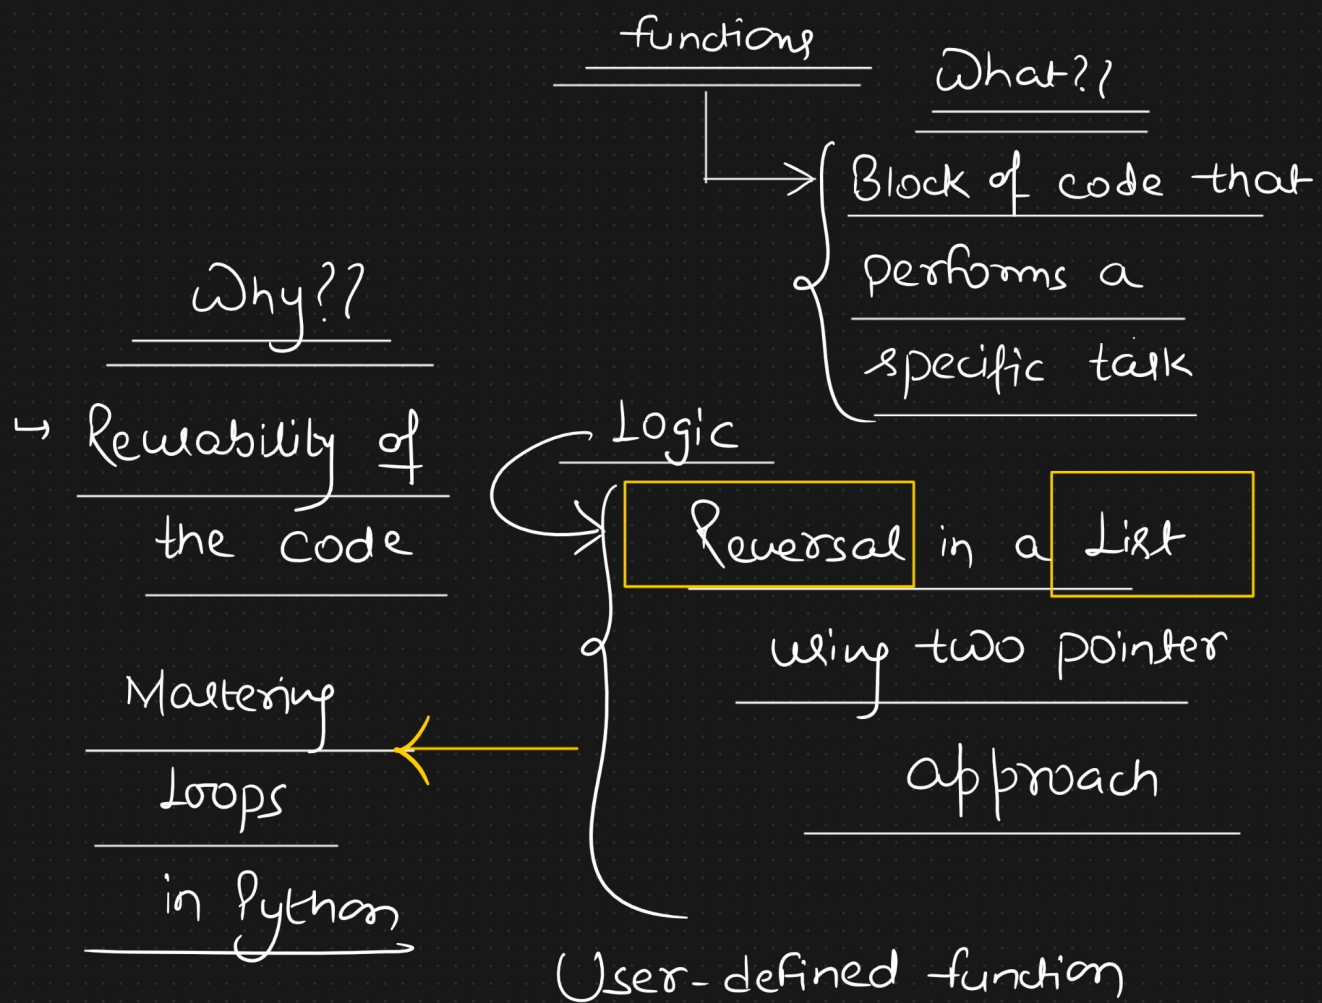 functions
What??
Block of code that
performs a
specific task
Why??
Reusability of
the code
Logic
Reversal in a List
using two pointer
approach
Mastering
Loops
in Python
User-defined function